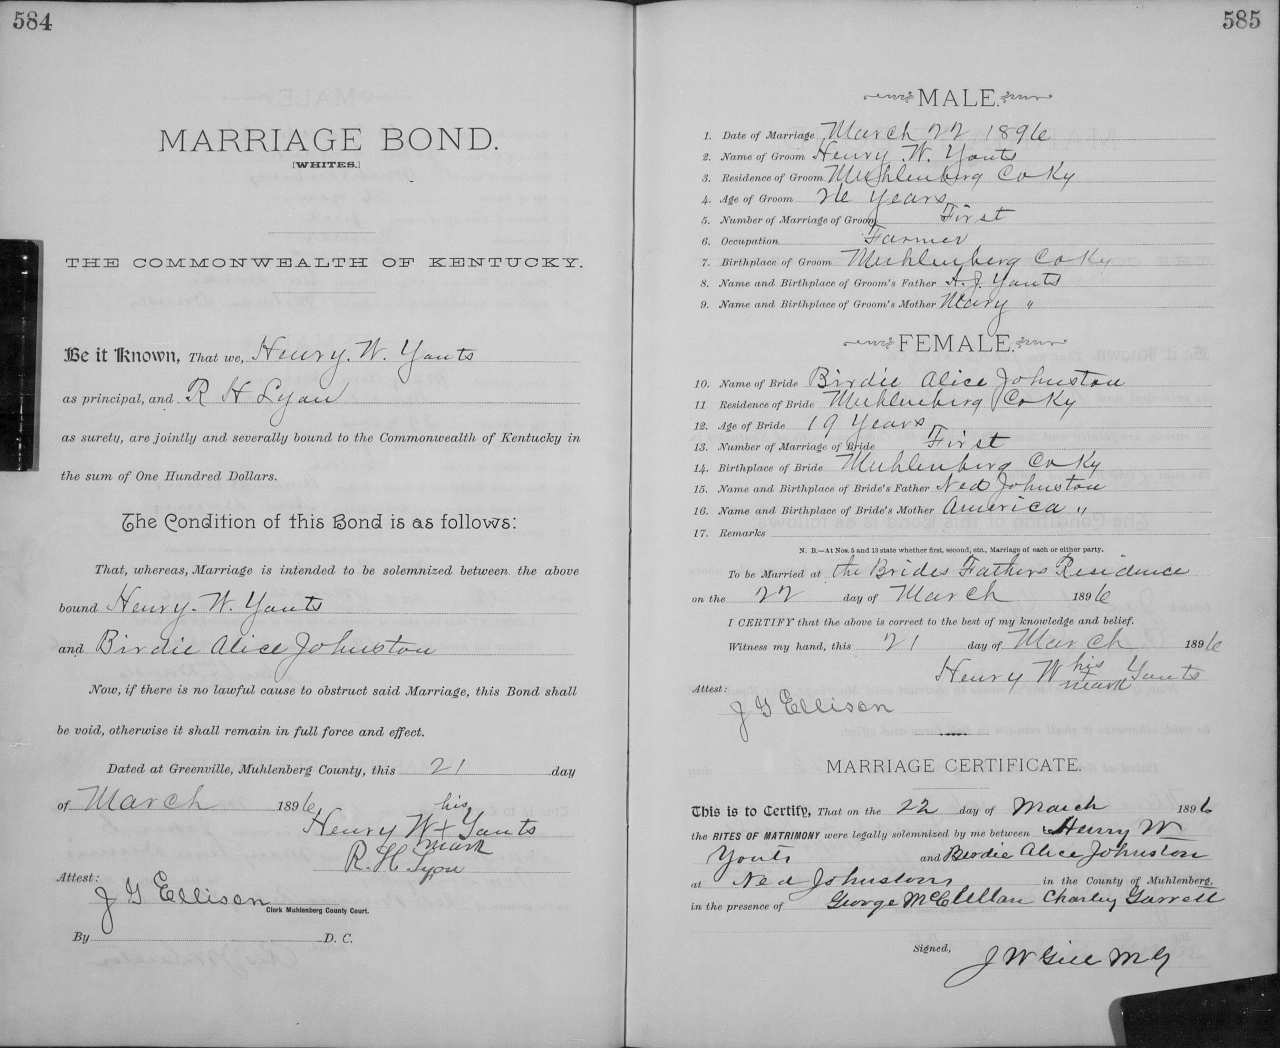 584
MARRIAGE BOND.
[WHITES.]
THE COMMONWEALTH OF KENTUCKY.
Be it Known, That we, Henry. W. Yonts
as principal, and R H Lyon
as surety, are jointly and severally bound to the Commonwealth of Kentucky in
the sum of One Hundred Dollars.
The Condition of this Bond is as follows:
That, whereas, Marriage is intended to be solemnized between the above
bound Henry. W. Yonts
and Birdie Alice Johnston
Now, if there is no lawful cause to obstruct said Marriage, this Bond shall
be void, otherwise it shall remain in full force and effect.
Dated at Greenville, Muhlenberg County, this 21 day
of March 1896
his
Henry W + Yonts
mark
R. H. Lyon
Attest:
J G Ellison
Clerk Muhlenberg County Court.
By D. C.
585
MALE.
1. Date of Marriage March 22 1896
2. Name of Groom Henry W. Yonts
3. Residence of Groom Muhlenberg Co Ky
4. Age of Groom 26 Years
5. Number of Marriage of Groom First
6. Occupation Farmer
7. Birthplace of Groom Muhlenberg Co Ky
8. Name and Birthplace of Groom's Father A. J. Yonts
9. Name and Birthplace of Groom's Mother Mary "
FEMALE.
10. Name of Bride Birdie Alice Johnston
11 Residence of Bride Muhlenberg Co Ky
12. Age of Bride 19 Years
13. Number of Marriage of Bride First
14. Birthplace of Bride Muhlenberg Co Ky
15. Name and Birthplace of Bride's Father Ned Johnston
16. Name and Birthplace of Bride's Mother America "
17. Remarks
N. B.—At Nos. 5 and 13 state whether first, second, etc., Marriage of each or either party.
To be Married at the Brides Fathers Residence
on the 22 day of March 1896
I CERTIFY that the above is correct to the best of my knowledge and belief.
Witness my hand, this 21 day of March 1896
Henry W his mark Yonts
Attest:
J G Ellison
MARRIAGE CERTIFICATE.
This is to Certify, That on the 22 day of March 1896
the RITES OF MATRIMONY were legally solemnized by me between Henry W
Yonts and Birdie Alice Johnston
at Ned Johnstons in the County of Muhlenberg.
in the presence of George McClellan Charley Garrett
Signed,
J W Gill M G